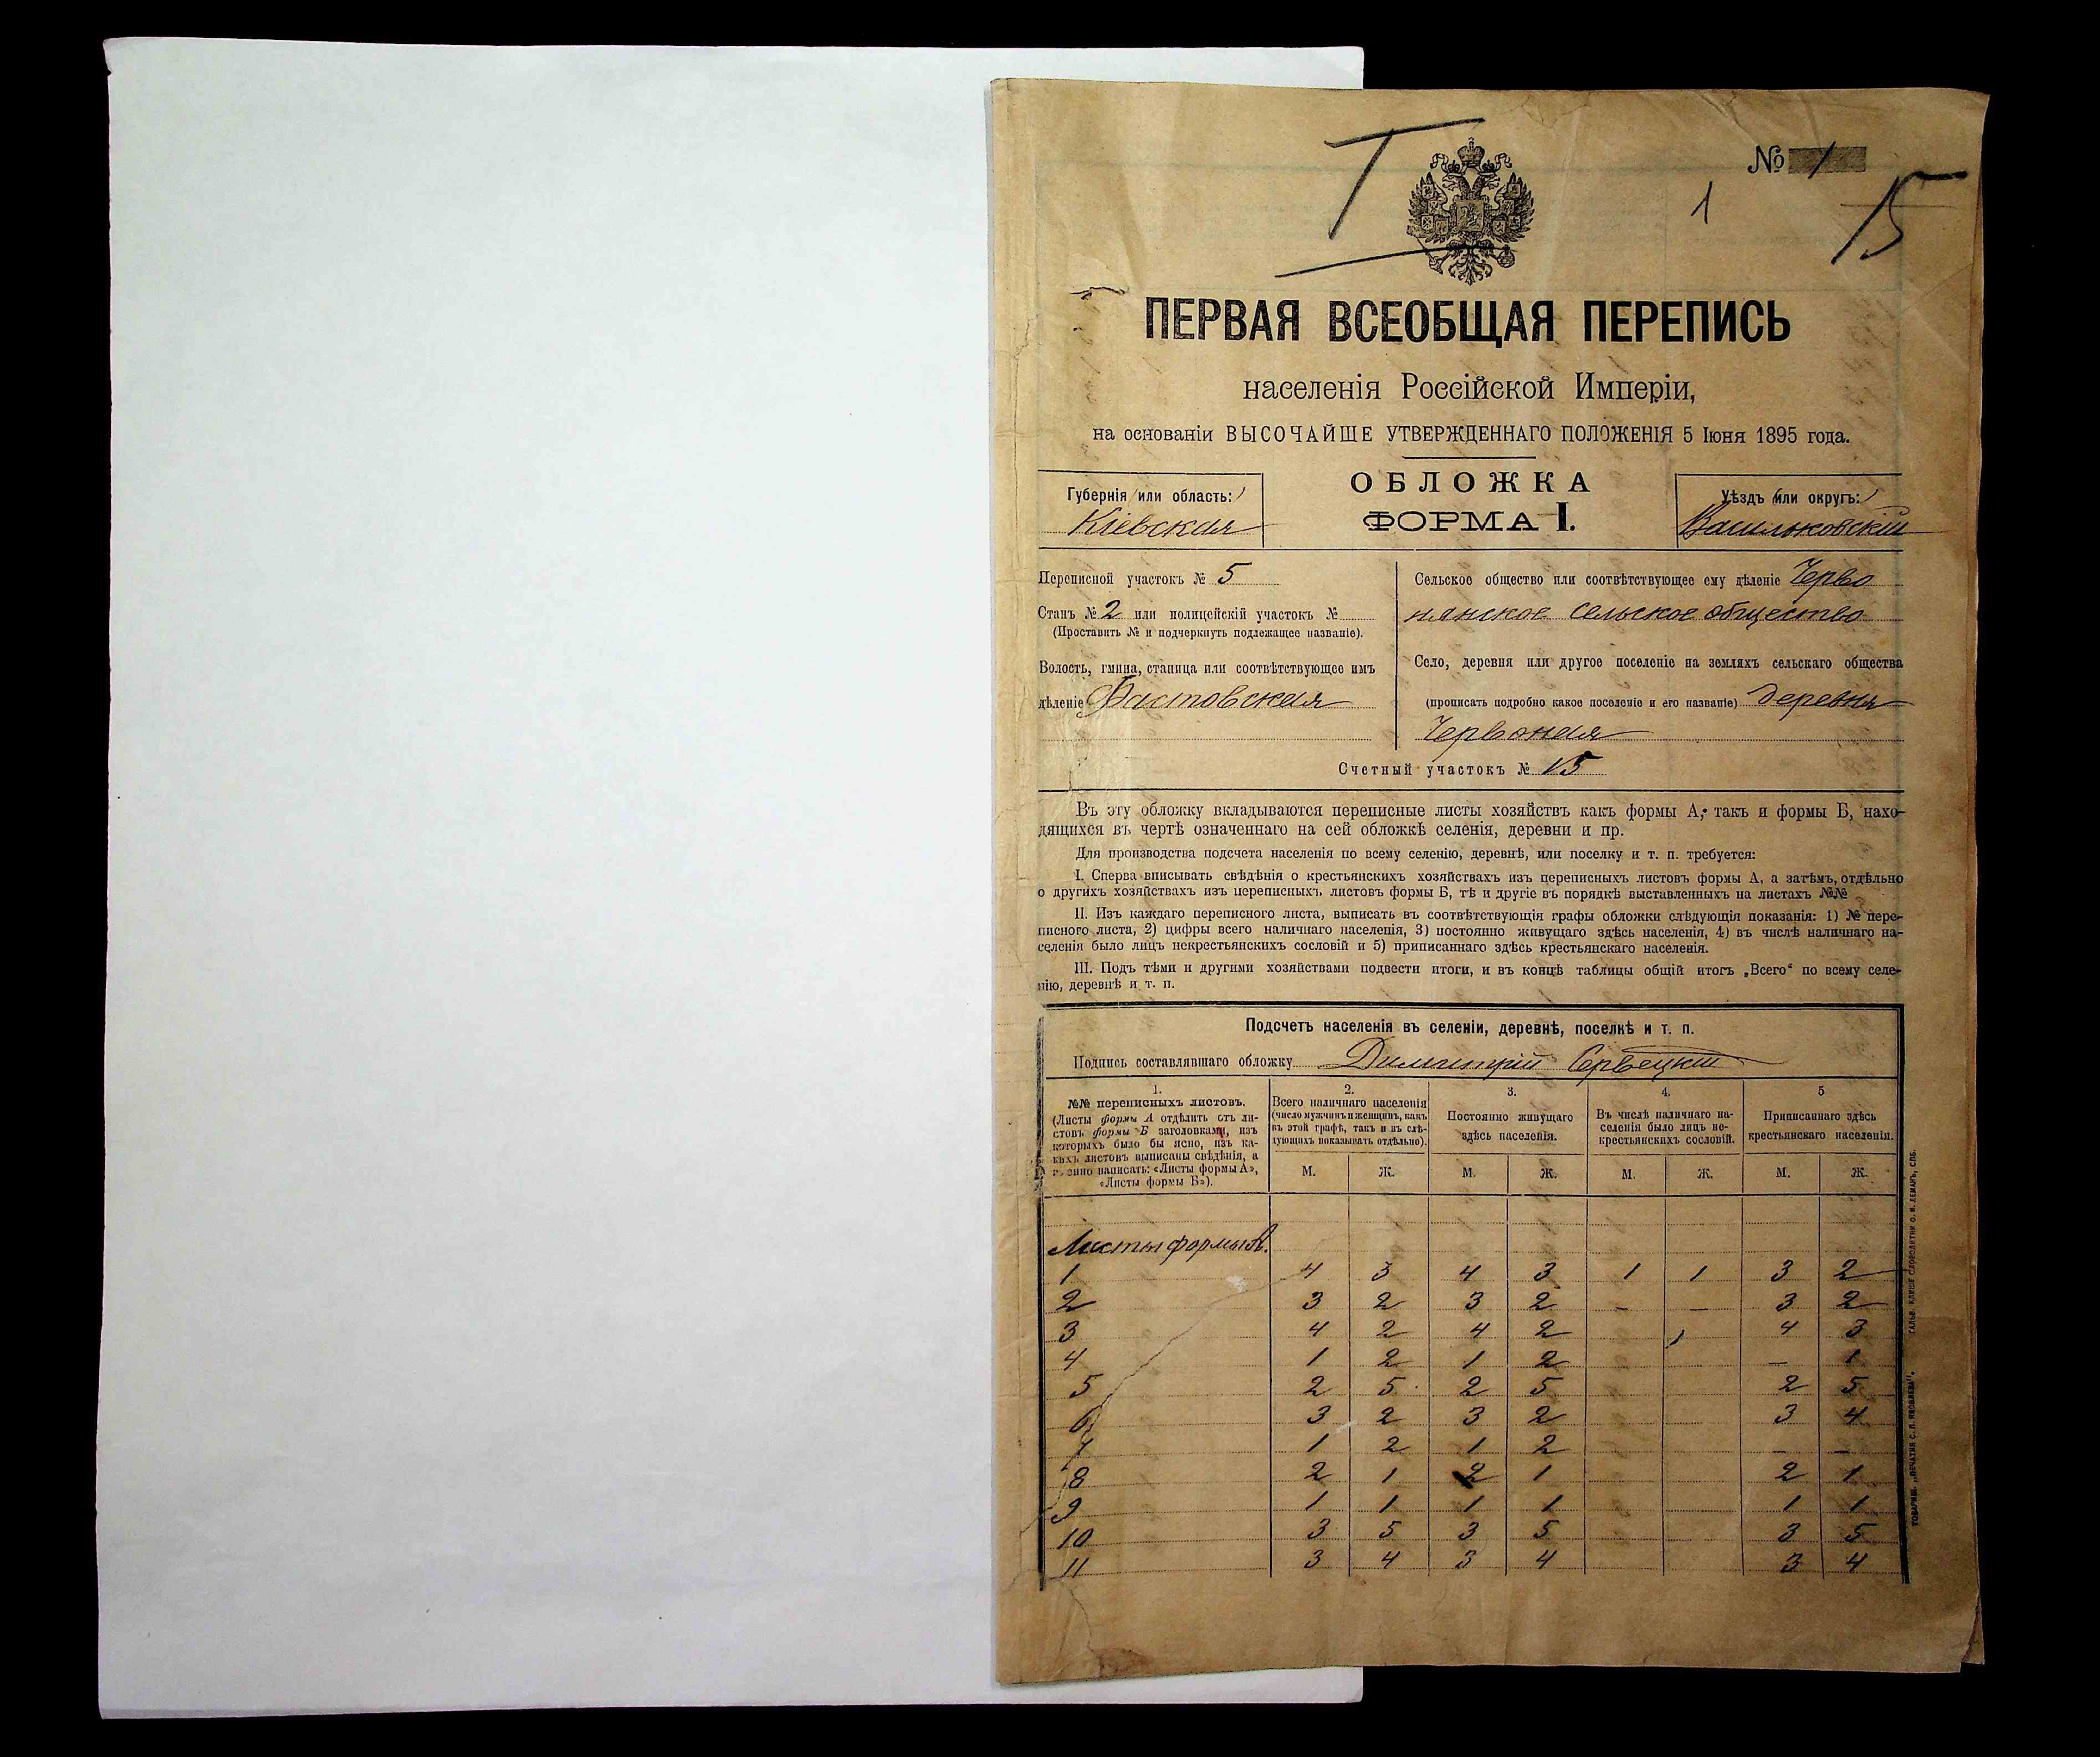 I
№ 1
1
15
ПЕРВАЯ ВСЕОБЩАЯ ПЕРЕПИСЬ
населенія Россійской Имперіи,
на основаніи ВЫСОЧАЙШЕ УТВЕРЖДЕННАГО ПОЛОЖЕНІЯ 5 Іюня 1895 года.
ОБЛОЖКА
ФОРМА I.
Губернія (или область:)
Кіевская
Уѣздъ (или округъ:)
Васильковскій
Переписной участокъ № 5
Станъ № 2 или полицейскій участокъ №
(Проставить № и подчеркнуть подлежащее названіе).
Волость, гмина, станица или соотвѣтствующее имъ
дѣленіе Фастовская
Сельское общество или соотвѣтствующее ему дѣленіе Черво
нянское сельское общество
Село, деревня или другое поселеніе на земляхъ сельскаго общества
(прописать подробно какое поселеніе и его названіе) деревня
Червоная
Счетный участокъ № 15
Въ эту обложку вкладываются переписные листы хозяйствъ какъ формы А, такъ и формы Б, нахо-
дящихся въ чертѣ означеннаго на сей обложкѣ селенія, деревни и пр.
Для производства подсчета населенія по всему селенію, деревнѣ, или поселку и т. п. требуется:
I. Сперва вписывать свѣдѣнія о крестьянскихъ хозяйствахъ изъ переписныхъ листовъ формы А, а затѣмъ, отдѣльно
о другихъ хозяйствахъ изъ переписныхъ листовъ формы Б, тѣ и другіе въ порядкѣ выставленныхъ на листахъ №№
II. Изъ каждаго переписного листа, выписать въ соотвѣтствующія графы обложки слѣдующія показанія: 1) № пере-
писного листа, 2) цифры всего наличнаго населенія, 3) постоянно живущаго здѣсь населенія, 4) въ числѣ наличнаго на-
селенія было лицъ некрестьянскихъ сословій и 5) приписаннаго здѣсь крестьянскаго населенія.
III. Подъ тѣми и другими хозяйствами подвести итоги, и въ концѣ таблицы общій итогъ „Всего“ по всему селе-
нію, деревнѣ и т. п.
Подсчетъ населенія въ селеніи, деревнѣ, поселкѣ и т. п.
Подпись составлявшаго обложку Димитрій Сервецкій
1.
№№ переписныхъ листовъ.
(Листы формы А отдѣлить отъ ли-
стовъ формы Б заголовками, изъ
которыхъ было бы ясно, изъ ка-
кихъ листовъ выписаны свѣдѣнія, а
именно написать: «Листы формы А»,
«Листы формы Б»).
2.
Всего наличнаго населенія
(число мужчинъ и женщинъ, какъ
въ этой графѣ, такъ и въ слѣ-
дующихъ показывать отдѣльно).
3.
Постоянно живущаго
здѣсь населенія.
4.
Въ числѣ наличнаго на-
селенія было лицъ не-
крестьянскихъ сословій.
5
Приписаннаго здѣсь
крестьянскаго населенія.
М. Ж. М. Ж. М. Ж. М. Ж.
Листы формы А.
1 4 3 4 3 1 1 3 2
2 3 2 3 2 – – 3 2
3 4 2 4 2 4 3
4 1 2 1 2 – 1
5 2 5 2 5 2 5
6 3 2 3 2 3 4
7 1 2 1 2 – –
8 2 1 2 1 2 1
9 1 1 1 1 1 1
10 3 5 3 5 3 5
11 3 4 3 4 3 4